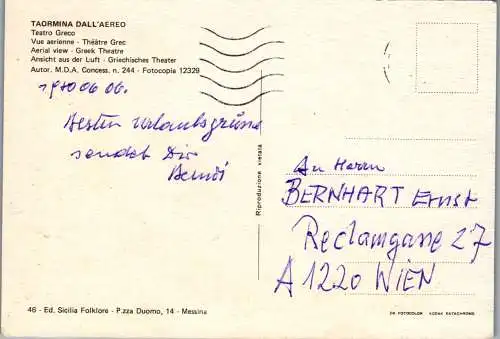 TAORMINA DALL'AEREO
Teatro Greco
Vue aerienne - Théâtre Grec
Aerial view - Greek Theatre
Ansicht aus der Luft - Griechisches Theater
Autor. M.D.A. Concess. n. 244 - Fotocopia 12329
1980 06 06.
Besten Urlaubsgrüsse
sendet Dir
Riproduzione vietata
An Herrn
BERNHART Ernst
Reclamgasse 27
A 1220 WIEN
46 - Ed. Sicilia Folklore - P.zza Duomo, 14 - Messina
DA FOTOCOLOR KODAK EKTACHROME